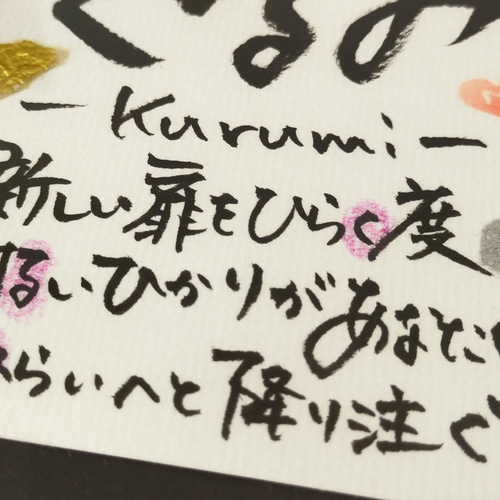 くるみ
－Kurumi－
新しい扉をひらく度
るいひかりがあなた
みらいへと降り注ぐ